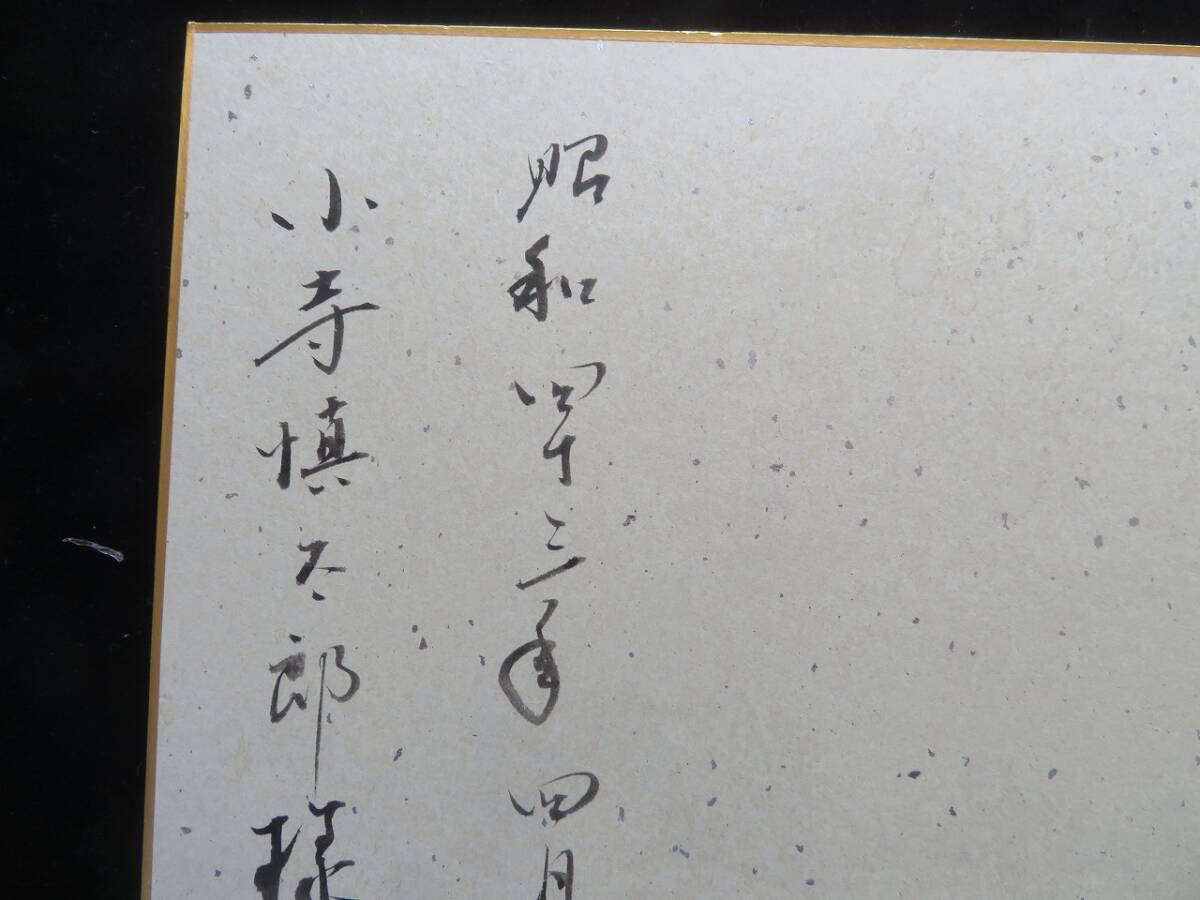 昭和四十三年四月
小寺慎太郎様